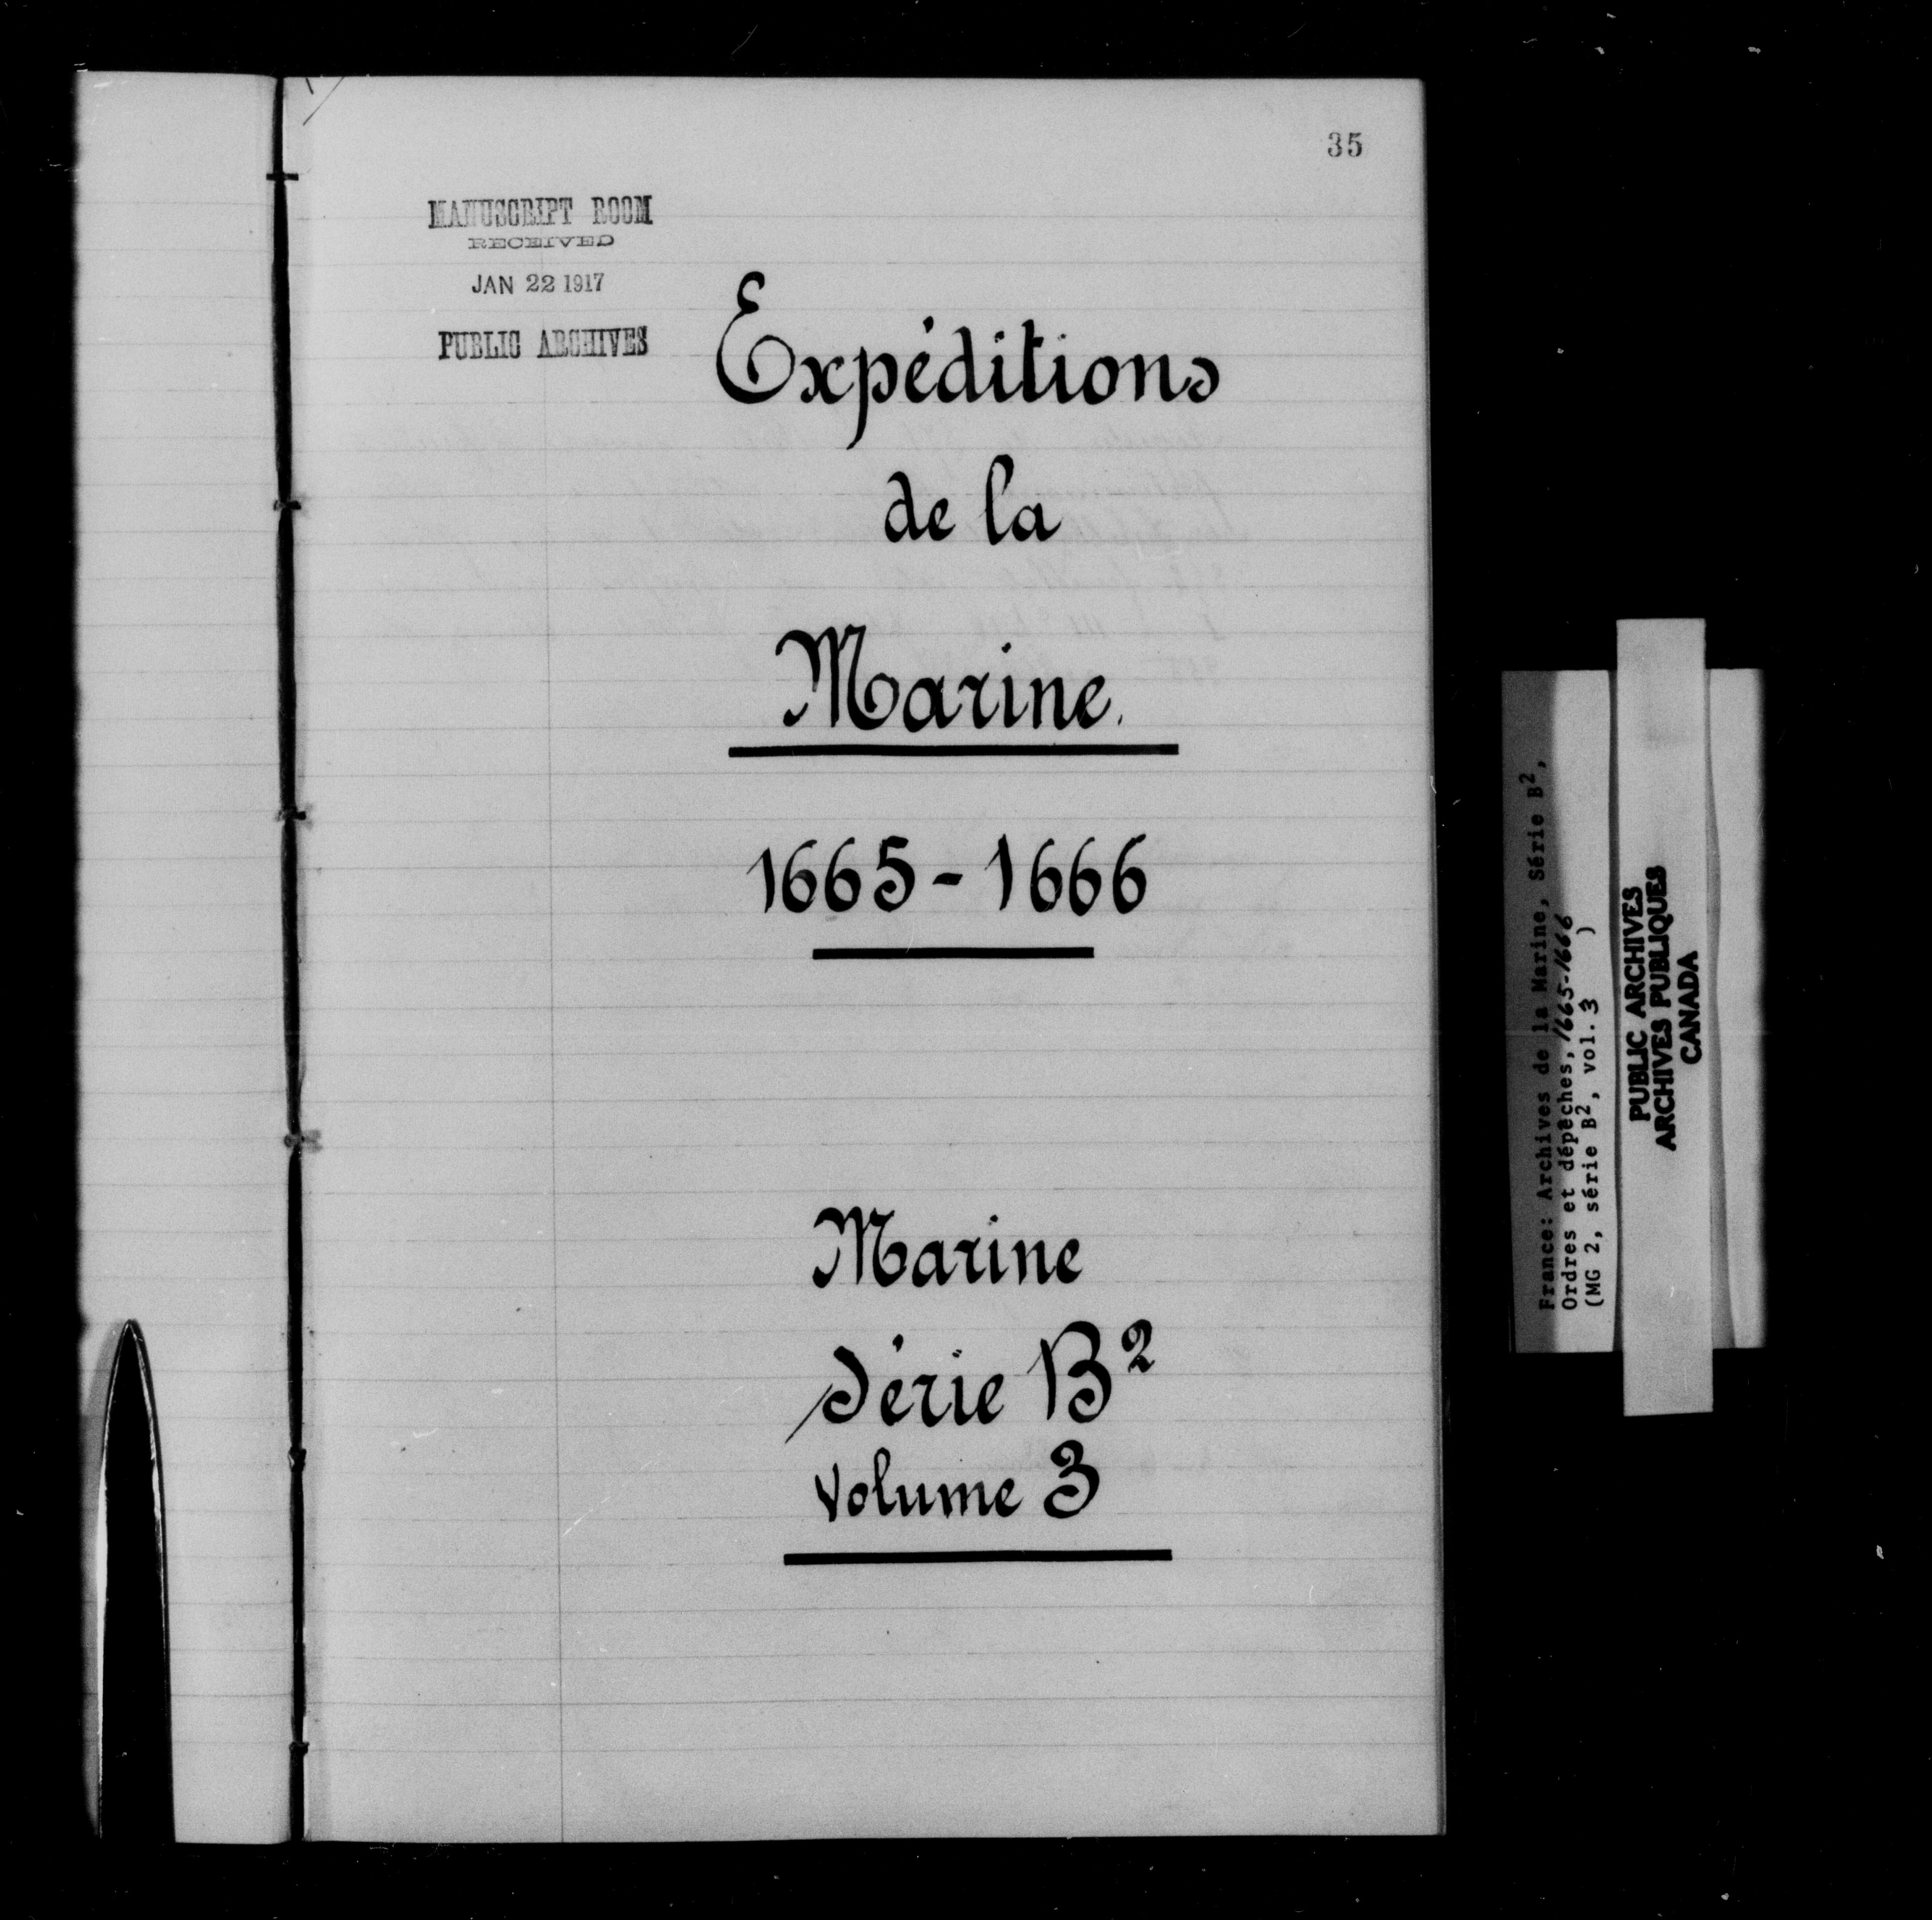 35
MANUSCRIPT ROOM
RECEIVED
JAN 22 1917
PUBLIC ARCHIVES
Expéditions
de la
Marine.
1665-1666
Marine
Série B²
Volume 3
France: Archives de la Marine, Série B²,
Ordres et dépêches, 1665-1666
(MG 2, série B², vol. 3 )
PUBLIC ARCHIVES
ARCHIVES PUBLIQUES
CANADA